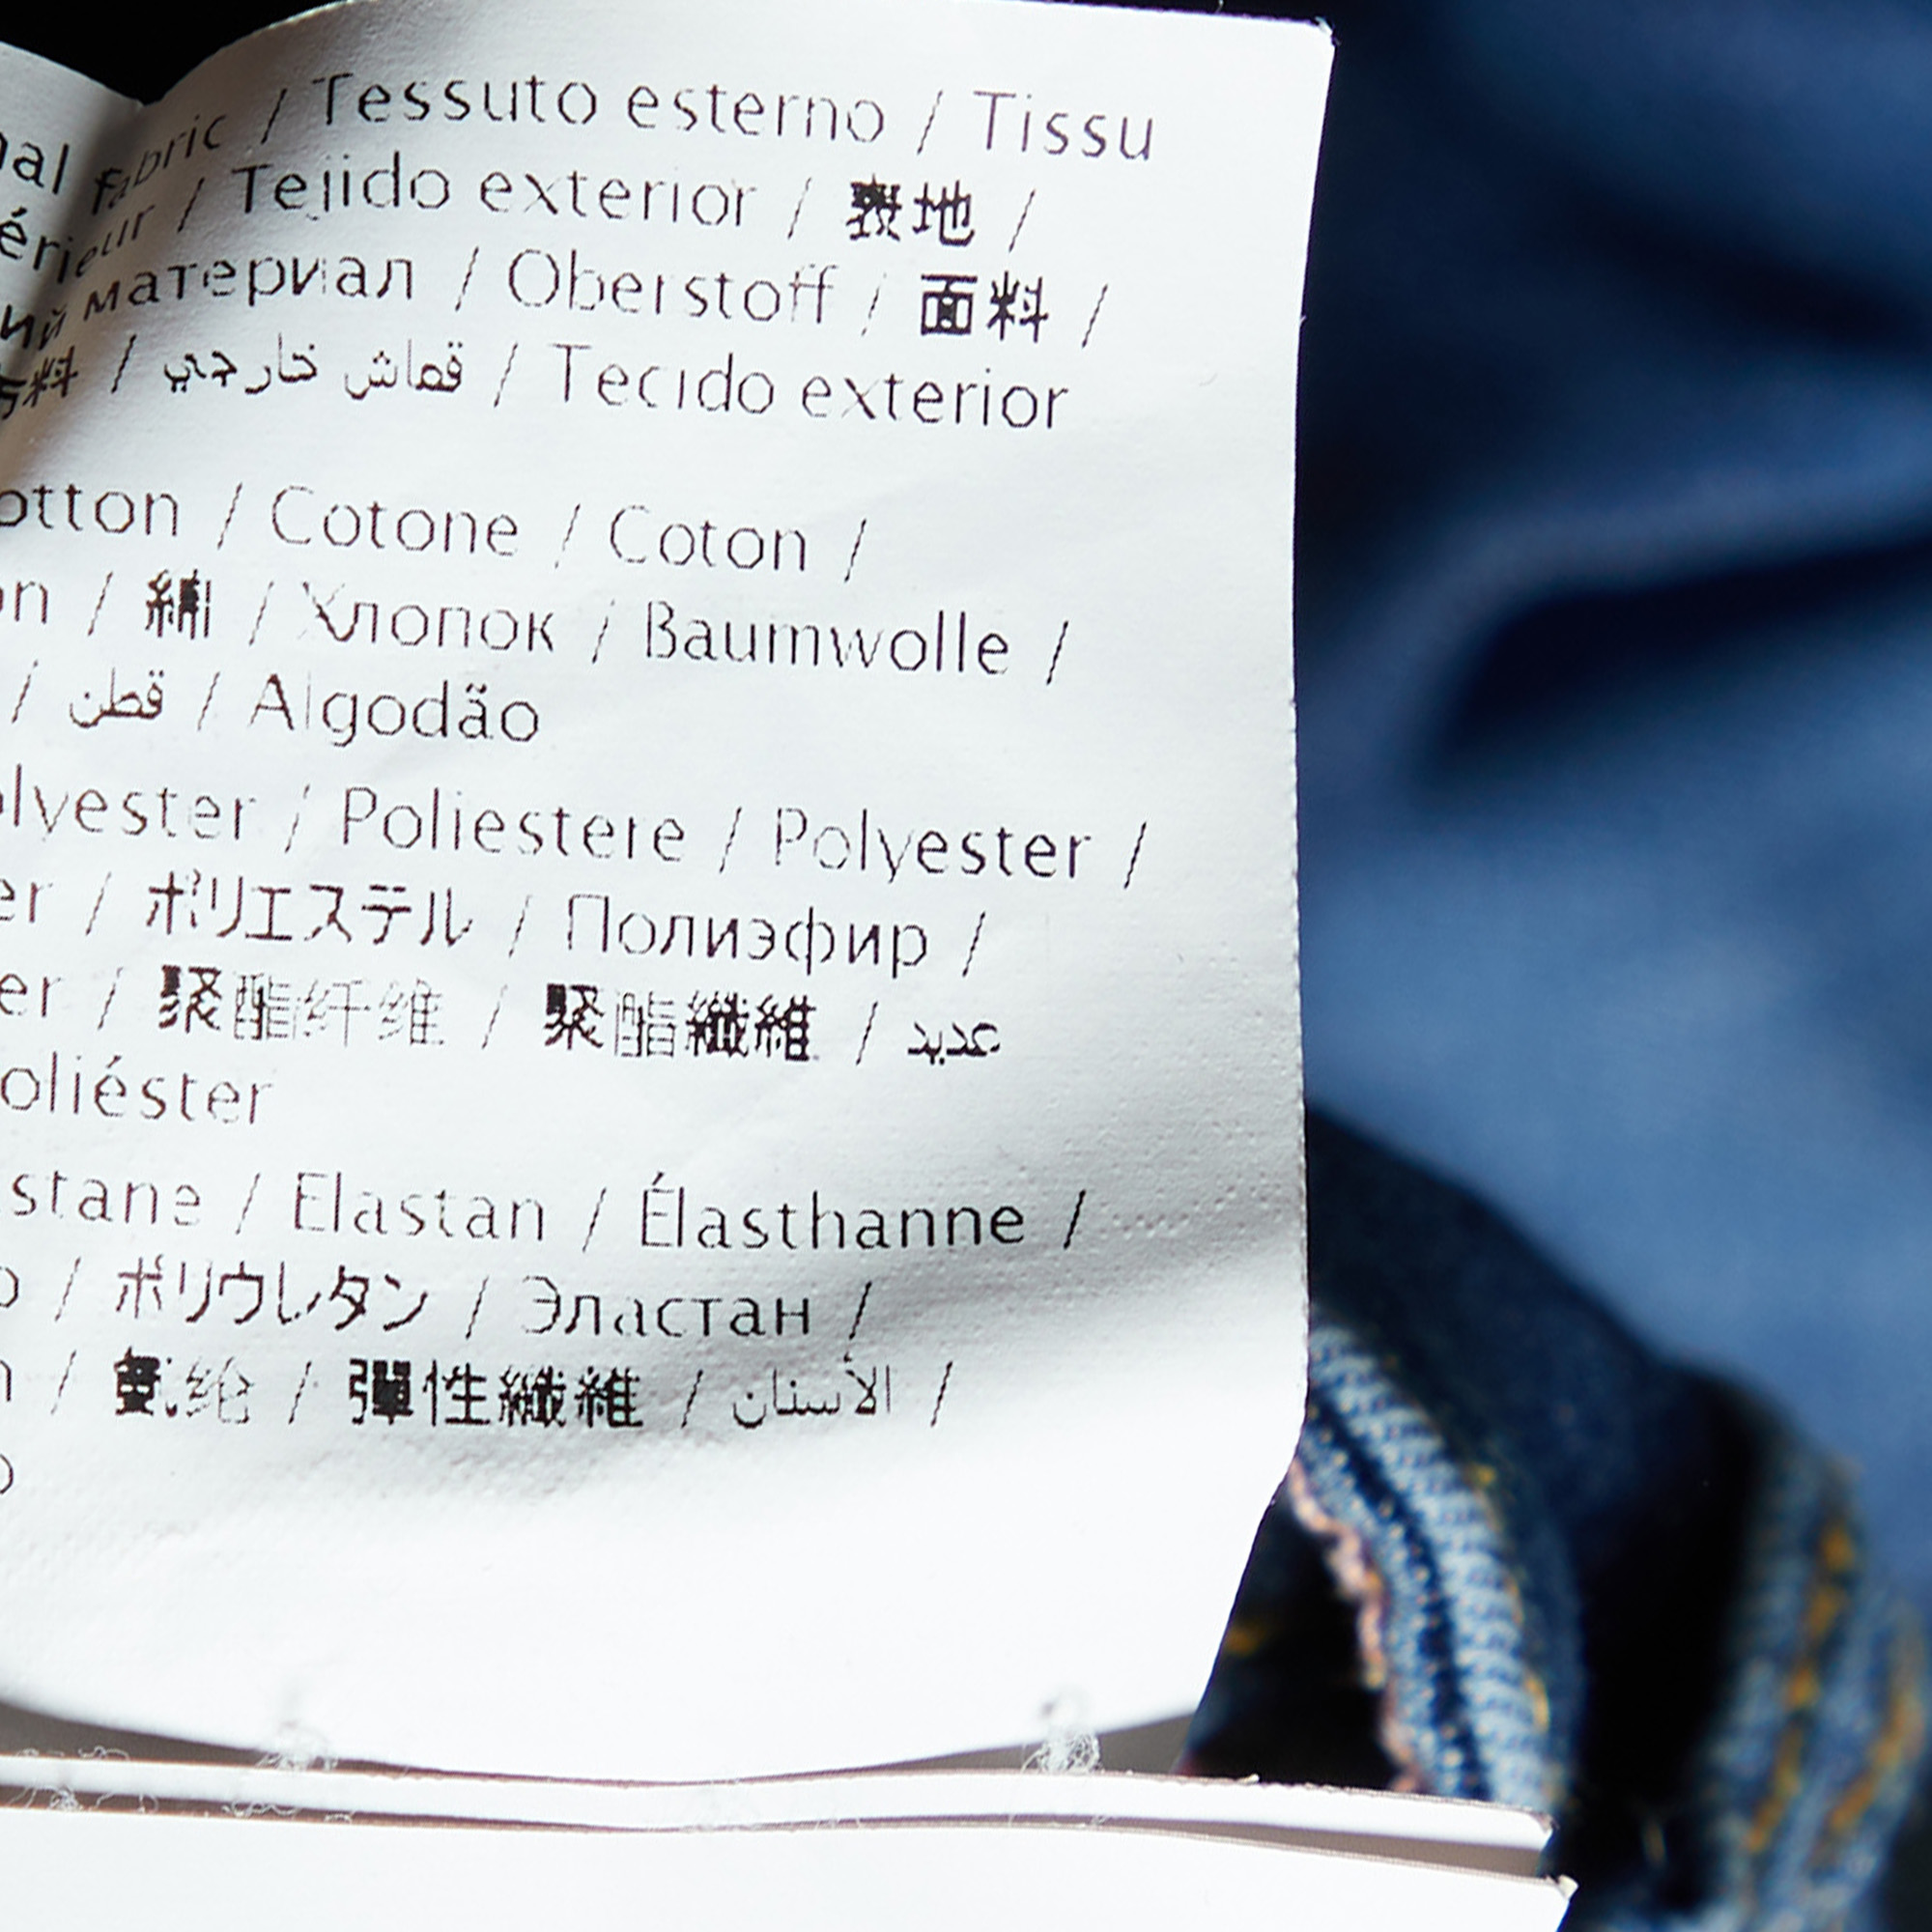 nal fabric / Tessuto esterno / Tissu
érieur / Tejido exterior / 表地 /
ий материал / Oberstoff / 面料 /
布料 / قماش خارجي / Tecido exterior
otton / Cotone / Coton /
on / 綿 / Хлопок / Baumwolle /
/ قطن / Algodão
olyester / Poliestere / Polyester /
er / ポリエステル / Полиэфир /
er / 聚酯纤维 / 聚酯纖維 / عديد
oliéster
stane / Elastan / Élasthanne /
o / ポリウレタン / Эластан /
n / 氨纶 / 彈性纖維 / الأستان /
o